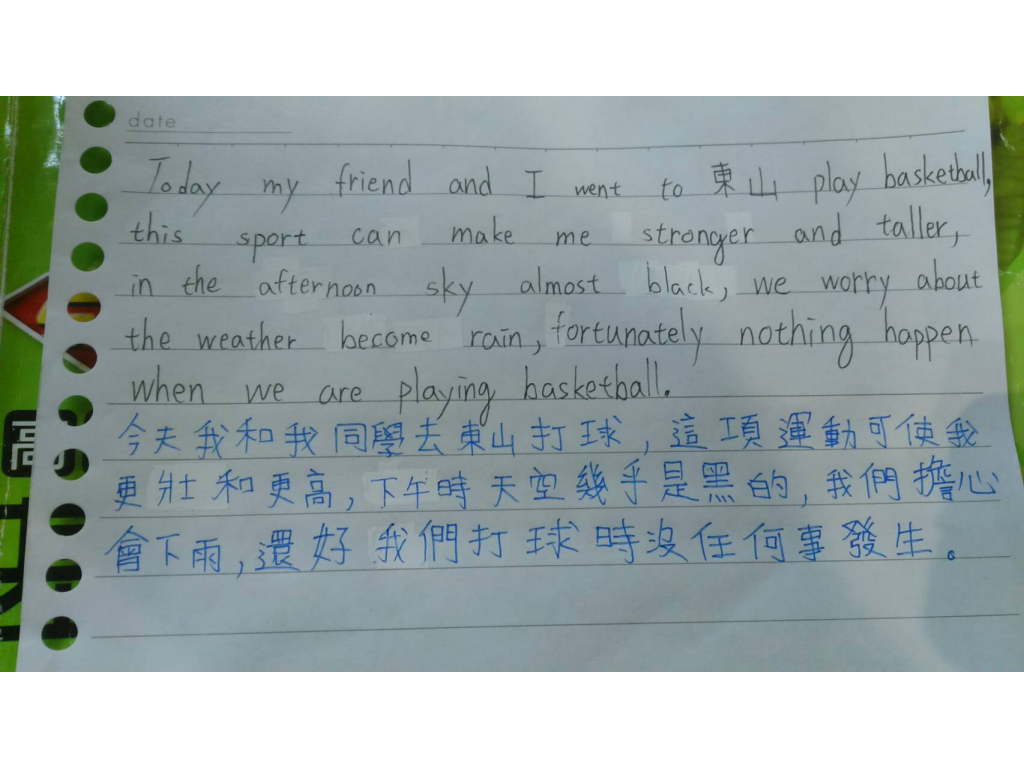 date
Today my friend and I went to 東山 play basketball,
this sport can make me stronger and taller,
in the afternoon sky almost black, we worry about
the weather become rain, fortunately nothing happen
when we are playing basketball.
今天我和我同學去東山打球，這項運動可使我
更壯和更高，下午時天空幾乎是黑的，我們擔心
會下雨，還好我們打球時沒任何事發生。
高